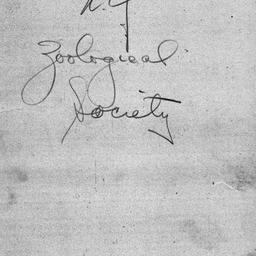 N.Y.
Zoological
Society